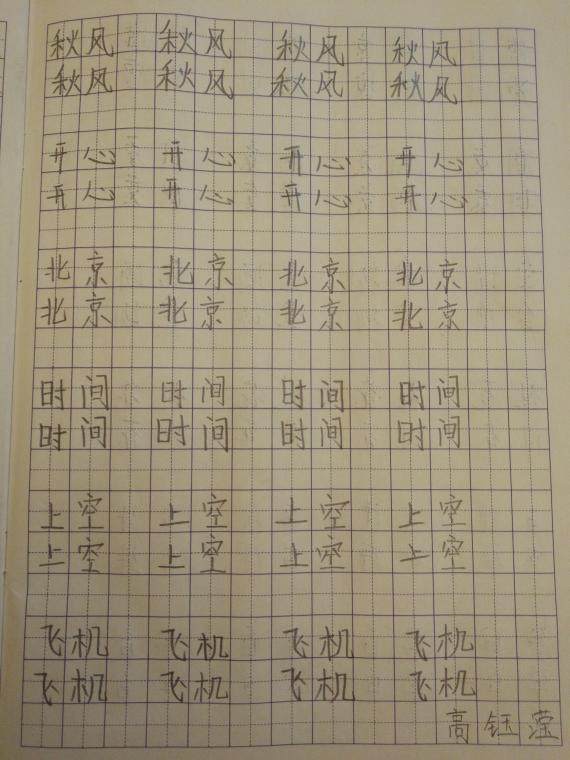 秋风 秋风 秋风 秋风
秋风 秋风 秋风 秋风
开心 开心 开心 开心
开心 开心 开心 开心
北京 北京 北京 北京
北京 北京 北京 北京
时间 时间 时间 时间
时间 时间 时间 时间
上空 上空 上空 上空
上空 上空 上空 上空
飞机 飞机 飞机 飞机
飞机 飞机 飞机 飞机
高钰滢